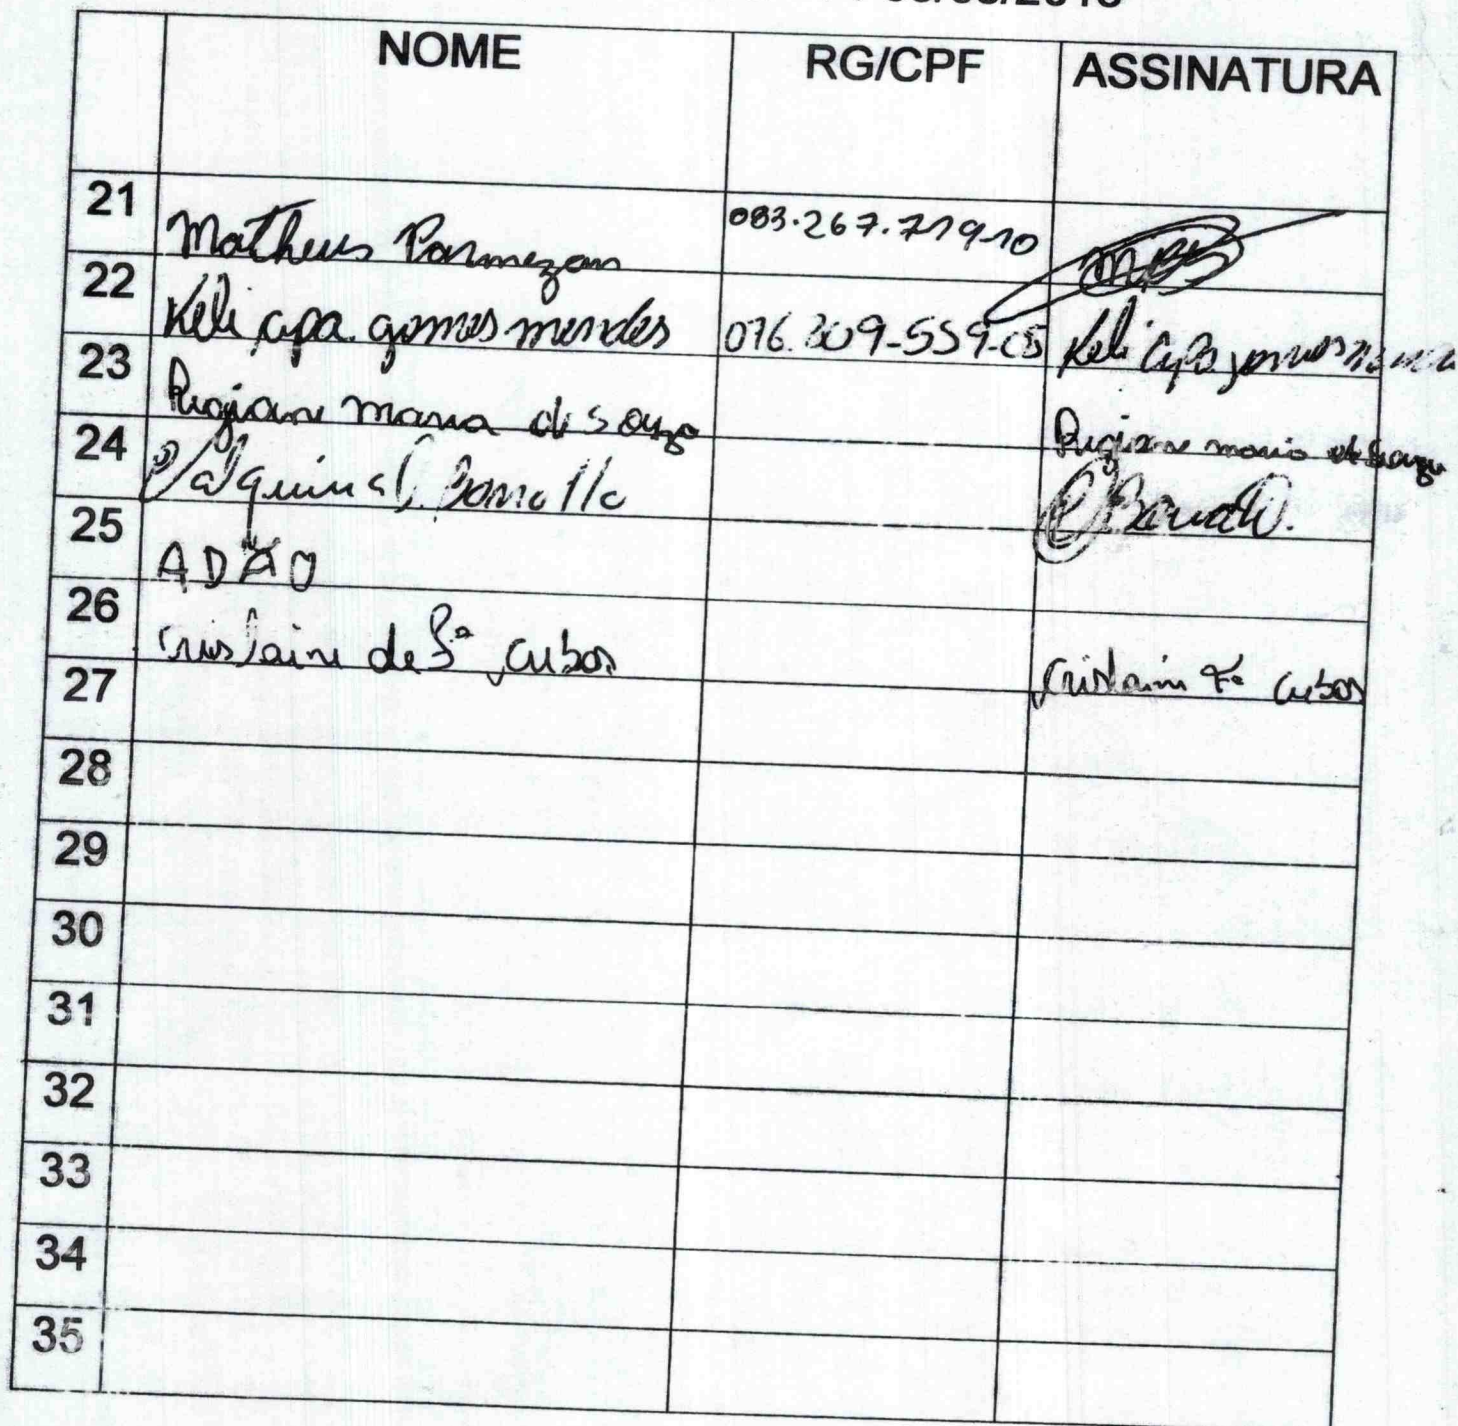 NOME RG/CPF ASSINATURA
21 Matheus Parmezan 083.267.719-10
22 Keli apa. gomes mendes 076.309-559-05 Keli apa gomes
23 Regiane maria de Souza Regiane maria de Souza
24
25 ADÃO
26 Cristaine de Fª Cubas Cristaine Fª Cubas
27
28
29
30
31
32
33
34
35